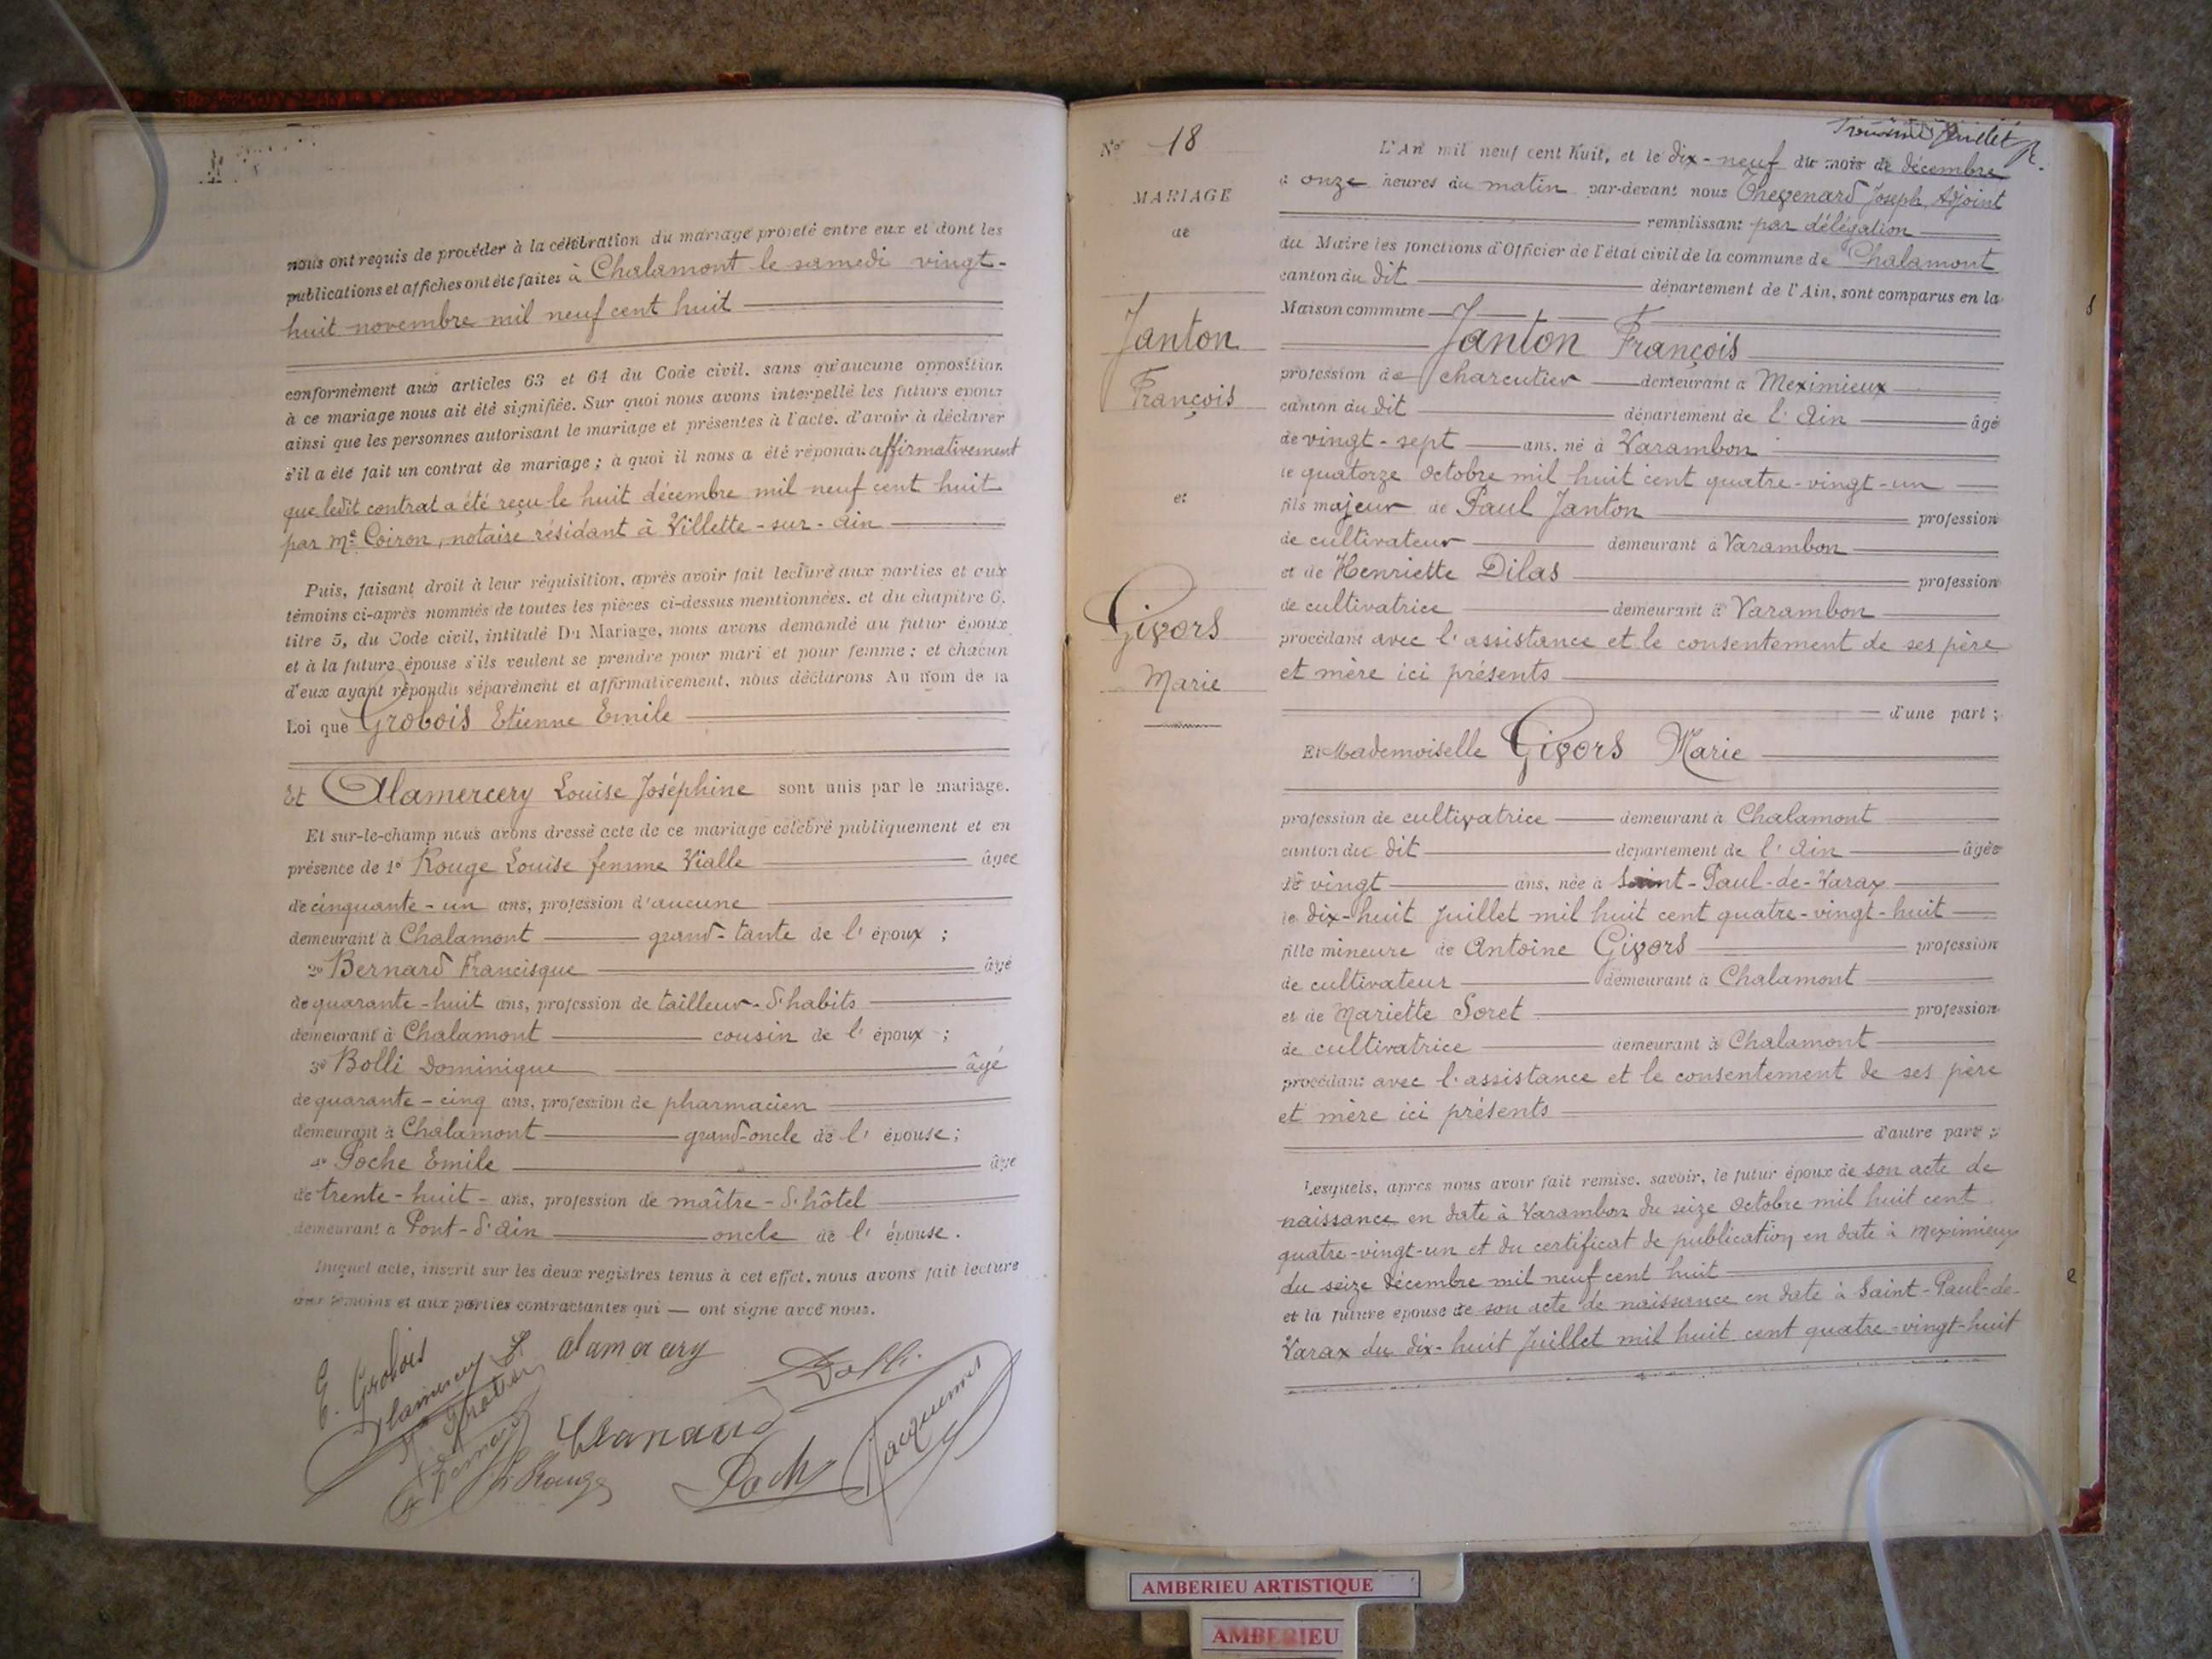 nous ont requis de procéder à la célébration du mariage projeté entre eux et dont les
publications et affiches ont été faites à Chalamont le samedi vingt-
huit novembre mil neuf cent huit
conformément aux articles 63 et 64 du Code civil, sans qu'aucune opposition
à ce mariage nous ait été signifiée. Sur quoi nous avons interpellé les futurs époux
ainsi que les personnes autorisant le mariage et présentes à l'acte, d'avoir à déclarer
s'il a été fait un contrat de mariage ; à quoi il nous a été répondu affirmativement
que ledit contrat a été reçu le huit décembre mil neuf cent huit
par Me Coiron, notaire résidant à Villette-sur-Ain
Puis, faisant droit à leur réquisition, après avoir fait lecture aux parties et aux
témoins ci-après nommés de toutes les pièces ci-dessus mentionnées, et du chapitre 6,
titre 5, du Code civil, intitulé Du Mariage, nous avons demandé au futur époux
et à la future épouse s'ils veulent se prendre pour mari et pour femme ; et chacun
d'eux ayant répondu séparément et affirmativement, nous déclarons Au nom de la
Loi que Grobois Etienne Emile
Et Alamercery Louise Joséphine sont unis par le mariage.
Et sur-le-champ nous avons dressé acte de ce mariage célébré publiquement et en
présence de 1º Rouge Louise femme Vialle âgée
de cinquante-un ans, profession d'aucune
demeurant à Chalamont grand-tante de l'époux ;
2º Bernard Francisque âgé
de quarante-huit ans, profession de tailleur-d'habits
demeurant à Chalamont cousin de l'époux ;
3º Bolli Dominique âgé
de quarante-cinq ans, profession de pharmacien
demeurant à Chalamont grand-oncle de l'épouse ;
4º Poche Emile âgé
de trente-huit ans, profession de maître-d'hôtel
demeurant à Pont-d'Ain oncle de l'épouse.
Duquel acte, inscrit sur les deux registres tenus à cet effet, nous avons fait lecture
aux témoins et aux parties contractantes qui — ont signé avec nous.
E. Grobois
Alamercery L.
Alamercery
Bolli
Jacquemet
L. Rouge
Poch
Nº 18
MARIAGE
de
Janton
François
et
Givors
Marie
Juillet
L'An mil neuf cent huit, et le dix-neuf du mois de décembre
à onze heures du matin par-devant nous Chevenard Joseph, Adjoint
remplissant par délégation
du Maire les fonctions d'Officier de l'état civil de la commune de Chalamont
canton du dit département de l'Ain, sont comparus en la
Maison commune
Janton François
profession de charcutier demeurant à Meximieux
canton du dit département de l'Ain âgé
de vingt-sept ans, né à Varambon
le quatorze octobre mil huit cent quatre-vingt-un
fils majeur de Paul Janton profession
de cultivateur demeurant à Varambon
et de Henriette Dilas profession
de cultivatrice demeurant à Varambon
procédant avec l'assistance et le consentement de ses père
et mère ici présents
d'une part ;
Et Mademoiselle Givors Marie
profession de cultivatrice demeurant à Chalamont
canton du dit département de l'Ain âgée
de vingt ans, née à Saint-Paul-de-Varax
le dix-huit juillet mil huit cent quatre-vingt-huit
fille mineure de Antoine Givors profession
de cultivateur demeurant à Chalamont
et de Mariette Soret profession
de cultivatrice demeurant à Chalamont
procédant avec l'assistance et le consentement de ses père
et mère ici présents
d'autre part ;
Lesquels, après nous avoir fait remise, savoir, le futur époux de son acte de
naissance en date à Varambon du seize octobre mil huit cent
quatre-vingt-un et du certificat de publication en date à Meximieux
du seize décembre mil neuf cent huit
et la future épouse de son acte de naissance en date à Saint-Paul-de-
Varax du dix-huit Juillet mil huit cent quatre-vingt-huit
AMBERIEU ARTISTIQUE
AMBERIEU